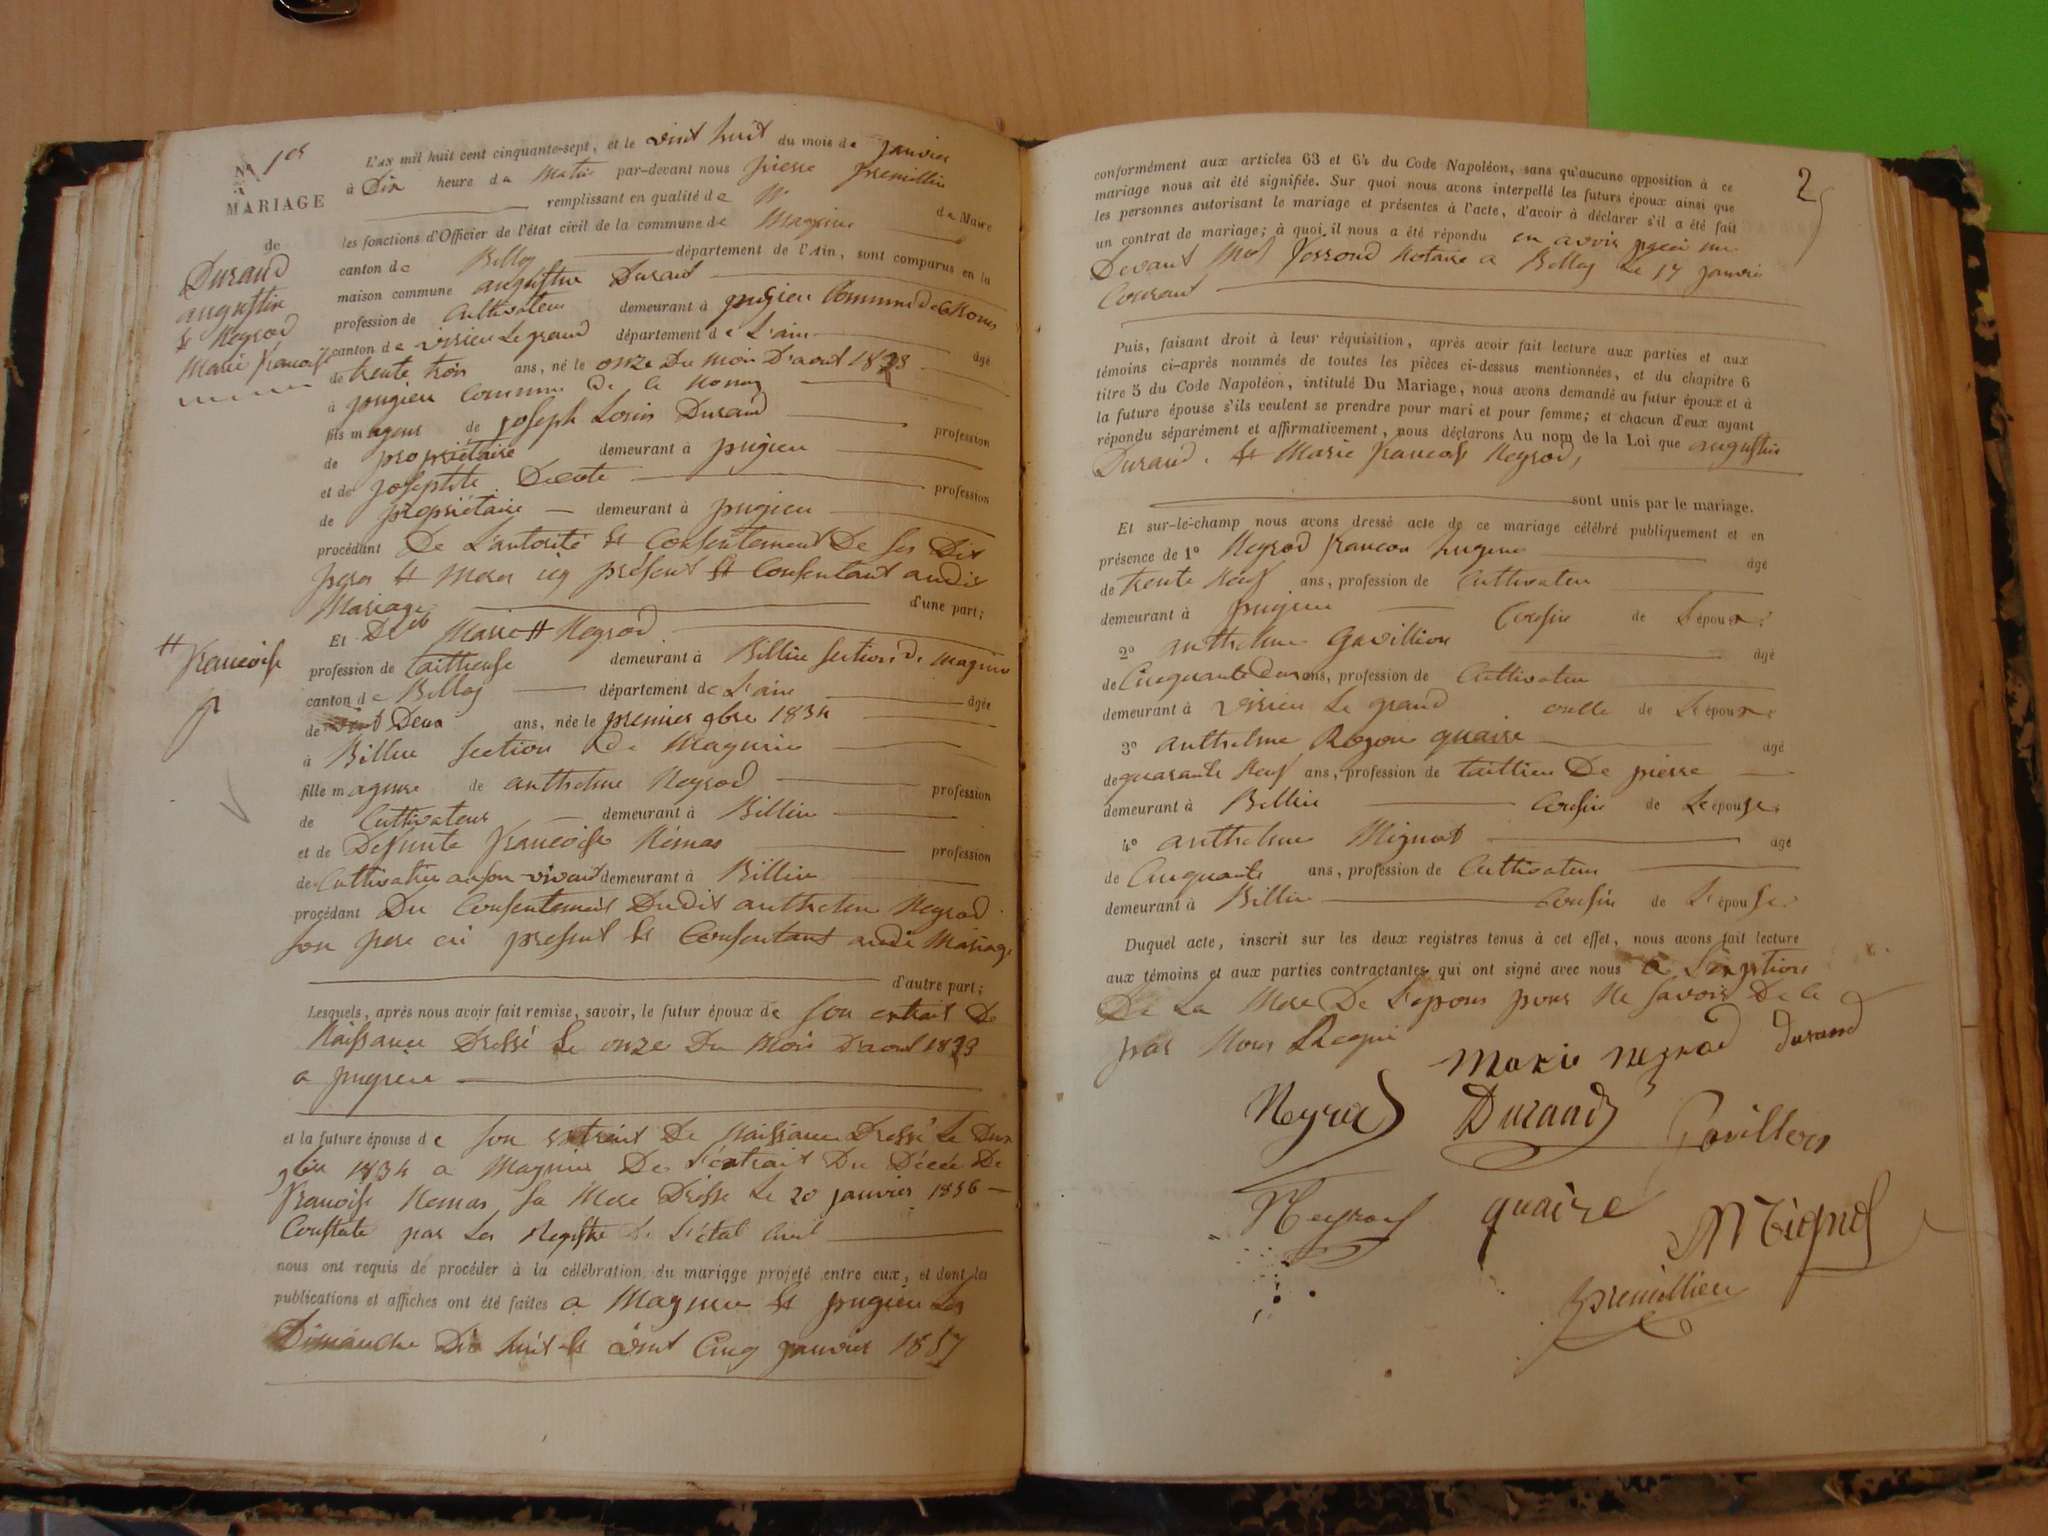 N° 1er
MARIAGE
de
Durand
augustin
et Neyrod
Marie francoise
L'an mil huit cent cinquante-sept, et le vint huit du mois de janvier
à Dix heure de Matin par-devant nous pierre premillieu
remplissant en qualité de de Maire
les fonctions d'Officier de l'état civil de la commune de Magnieu
canton de Belley département de l'Ain, sont comparus en la
maison commune augustin Durand
profession de Cultivateur demeurant à pugieu Commune de
canton de virieu Le grand département de L'ain âgé
de trente trois ans, né le onze Du mois D'aout 1823
à pugieu Commune de
fils mageur de joseph Louis Durand profession
de propriétaire demeurant à pugieu
et de profession
de propriétaire demeurant à pugieu
procédant De L'autorité et Consentement De ses Dit
peres et meres icy présent et Consentant audit
Mariage d'une part;
Et Marie # Neyrod
# francoise
profession de tailleuse demeurant à Billieu section de magnieu
canton de Belley département de L'ain âgée
de vint Deux ans, née le premier 9bre 1834
à Billieu section de Magnieu
fille mageure de anthelme Neyrod profession
de Cultivateur demeurant à Billieu
et de Defunte francoise Némoz profession
de Cultivatrice anson vivant demeurant à Billieu
procédant Du Consentement Dudit anthelme Neyrod
son pere ici present et Consentant audit Mariage
d'autre part;
Lesquels, après nous avoir fait remise, savoir, le futur époux de son extrait De
Naissance Dressé Le onze Du Mois D'aout 1823
a pugieu
et la future épouse de son extrait De Naissance Dressé Le Deux
9bre 1834 a Magnieu De L'extrait Du Décée De
francoise Nemoz sa Mere Dressé Le 20 janvier 1856
Constaté par Les Registre De L'état Civil
nous ont requis de procéder à la célébration du mariage projeté entre eux, et dont les
publications et affiches ont été faites a Magnieu et pugieu Les
Dimanche Dix huit et vint Cinq janvier 1857
2
conformément aux articles 63 et 64 du Code Napoléon, sans qu'aucune opposition à ce
mariage nous ait été signifiée. Sur quoi nous avons interpellé les futurs époux ainsi que
les personnes autorisant le mariage et présentes à l'acte, d'avoir à déclarer s'il a été fait
un contrat de mariage; à quoi il nous a été répondu en avoir passé un
Devant Notaire a Belley Le 17 janvier
Courant
Puis, faisant droit à leur réquisition, après avoir fait lecture aux parties et aux
témoins ci-après nommés de toutes les pièces ci-dessus mentionnées, et du chapitre 6
titre 5 du Code Napoléon, intitulé Du Mariage, nous avons demandé au futur époux et à
la future épouse s'ils veulent se prendre pour mari et pour femme; et chacun d'eux ayant
répondu séparément et affirmativement, nous déclarons Au nom de la Loi que augustin
Durand et Marie francoise Neyrod,
sont unis par le mariage.
Et sur-le-champ nous avons dressé acte de ce mariage célébré publiquement et en
présence de 1° Neyrod francois âgé
de trente Neuf ans, profession de Cultivateur
demeurant à pugieu Cousin de L'époux;
2° anthelme Gavillion âgé
de Cinquante Deux ans, profession de Cultivateur
demeurant à virieu Le grand oncle de L'époux;
3° anthelme quaire âgé
de quarante Neuf ans, profession de tailleur De pierre
demeurant à Billieu Cousin de L'épouse
4° anthelme Mignot âgé
de Cinquante ans, profession de Cultivateur
demeurant à Billieu Cousin de L'épouse
Duquel acte, inscrit sur les deux registres tenus à cet effet, nous avons fait lecture
aux témoins et aux parties contractantes qui ont signé avec nous a L'exeption
De La Mere De L'epoux pour Ne savoir De ce
par Nous Requi
Marie neyrod Durand
Neyrod Durand Gavillon
Neyrod quaire Mignot
premillieu